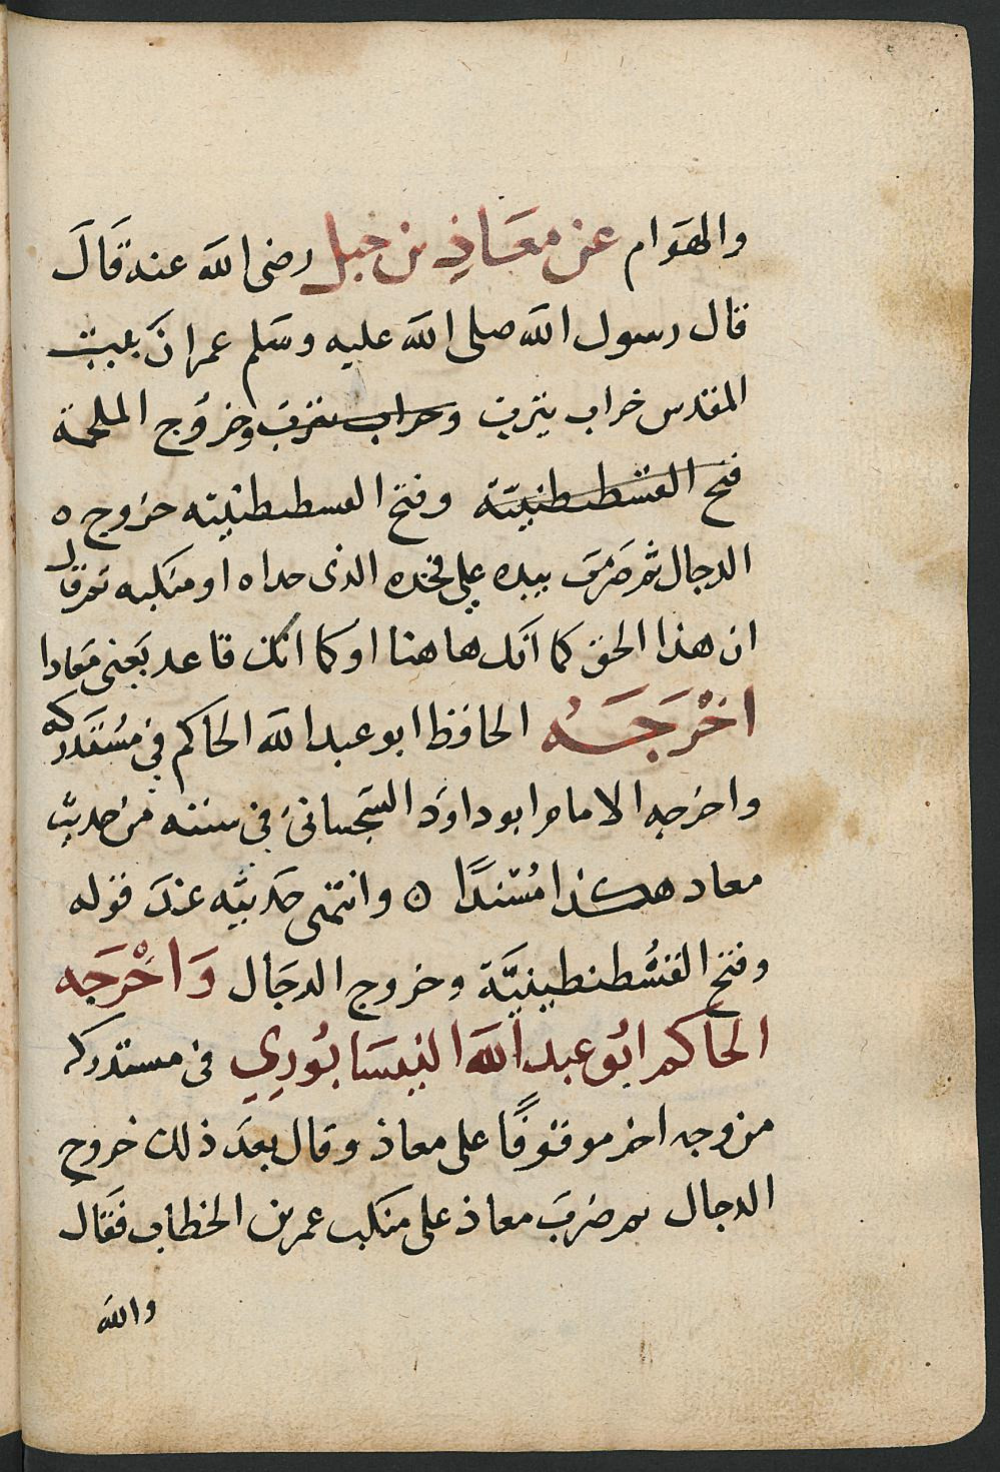 والهوام عن معاذ بن جبل رضى الله عنه قال
قال رسول الله صلى الله عليه وسلم عمران بيت
المقدس خراب يثرب وخراب يثرب وخروج الملحمة
فتح القسطنطينية وفتح القسطنطينيه خروج
الدجال ثم ضرب بيده على فخذه الذى حداه او منكبه ثم قال
ان هذا الحق كما انك هاهنا او كما انك قاعد يعنى معاذا
اخرجه الحافظ ابو عبد الله الحاكم في مستدركه
واخرجه الامام ابو داود السجستاني في سننه من حديث
معاد هكذا مسندا ه وانتهى حديثه عند قوله
وفتح القسطنطينية وخروج الدجال واخرجه
الحاكم ابو عبد الله النيسابوري في مستدركه
من وجه اخر موقوفا على معاذ وقال بعد ذلك خروج
الدجال ثم ضرب معاذ على منكب عمر بن الخطاب فقال
والله